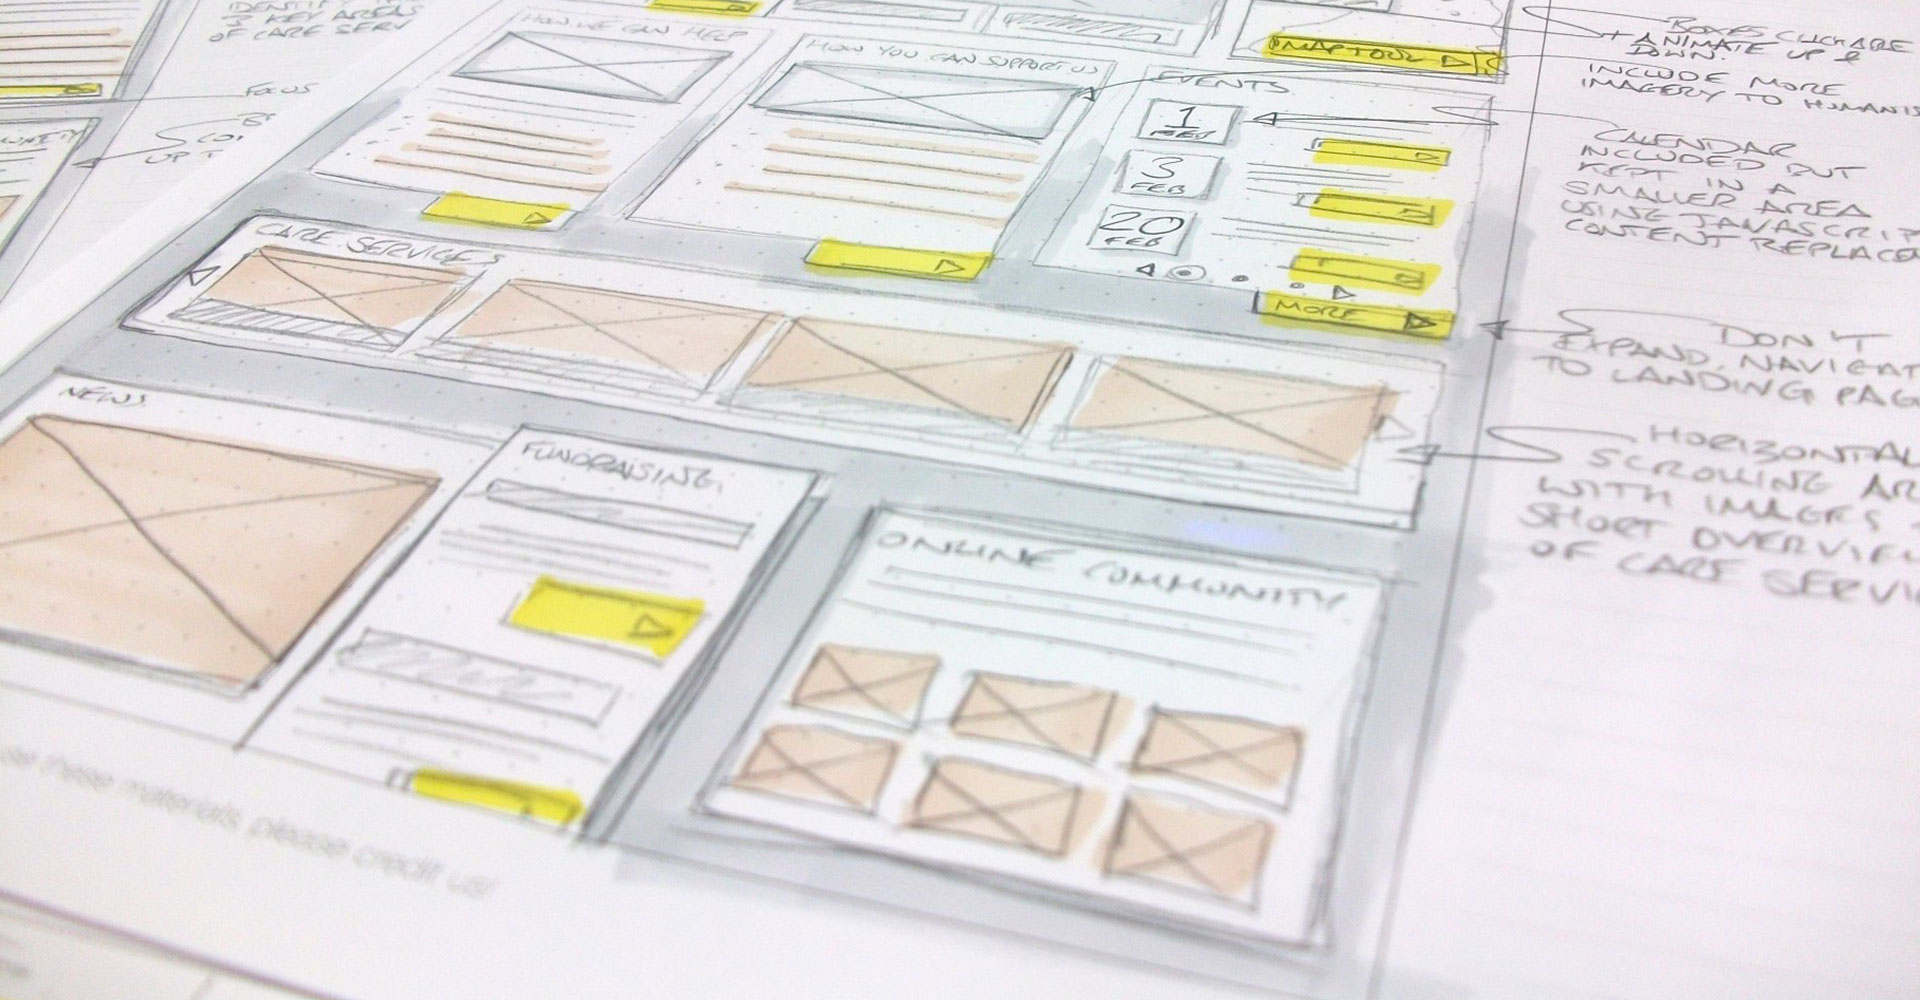 IDENTIFY
3 KEY AREAS
OF CARE SERV
FOCUS
UP T
HOW WE CAN HELP
HOW YOU CAN SUPPORT US
MAP TOOL
EVENTS
1
FEB
3
FEB
20
FEB
MORE
CARE SERVICES
NEWS
FUNDRAISING
ONLINE COMMUNITY
BOXES CLICKABLE
+ ANIMATE UP &
DOWN.
INCLUDE MORE
IMAGERY TO HUMANIS
CALENDAR
INCLUDED BUT
KEPT IN A
SMALLER AREA
USING JAVASCRIP
CONTENT REPLACE
DON'T
EXPAND. NAVIGAT
TO LANDING PAG
HORIZONTAL
SCROLLING AR
WITH IMAGES
SHORT OVERVIEW
OF CARE SERVI
se these materials, please credit us!